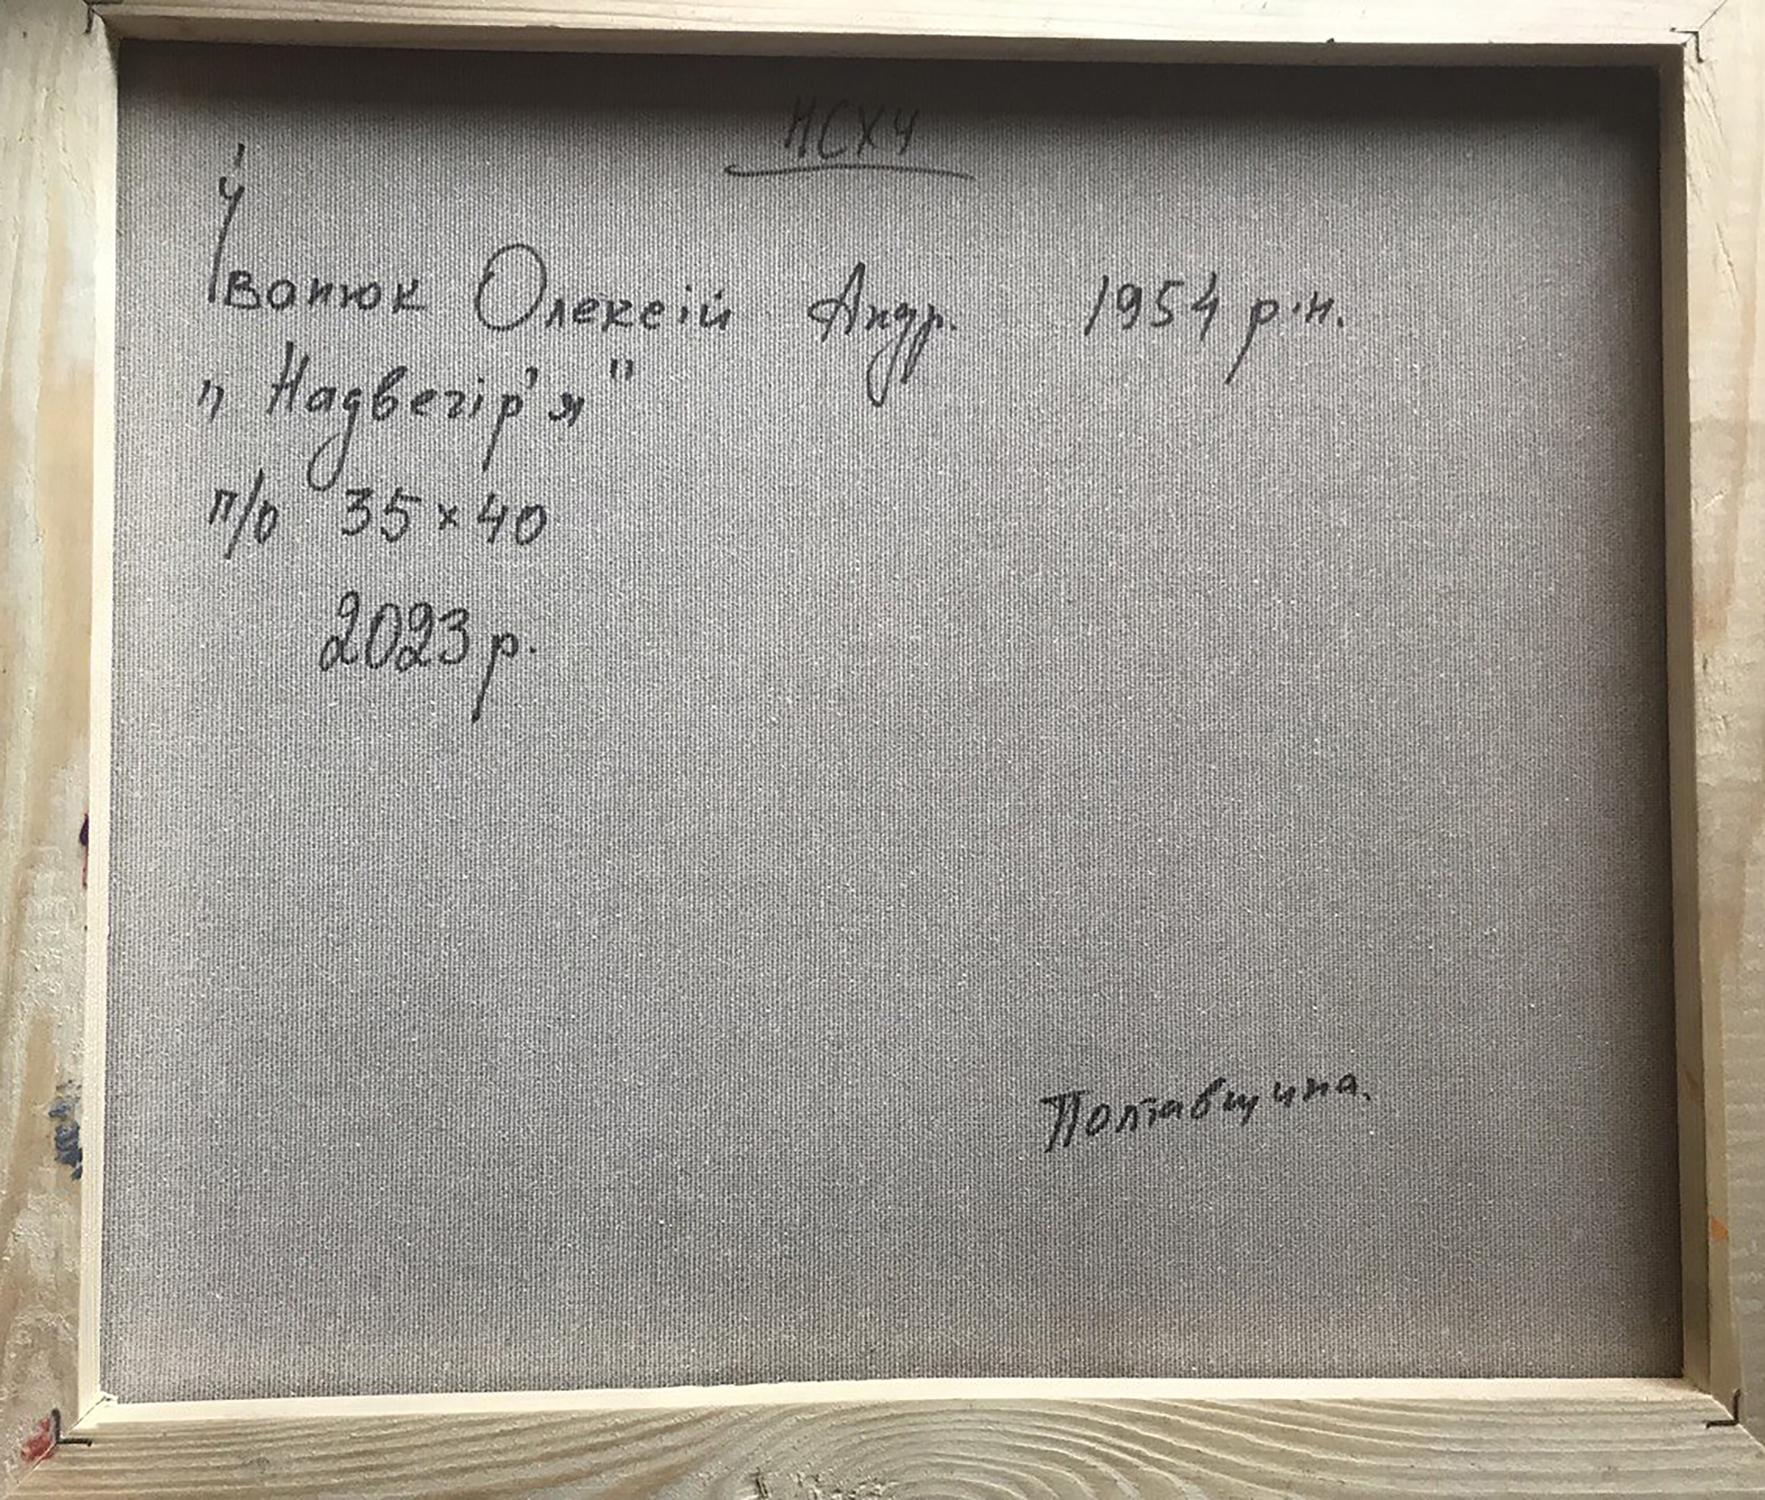 НСХУ
Івонюк Олексій Андр. 1954 р.н.
„Надвечір'я"
п/о 35×40
2023 р.
Полтавщина.